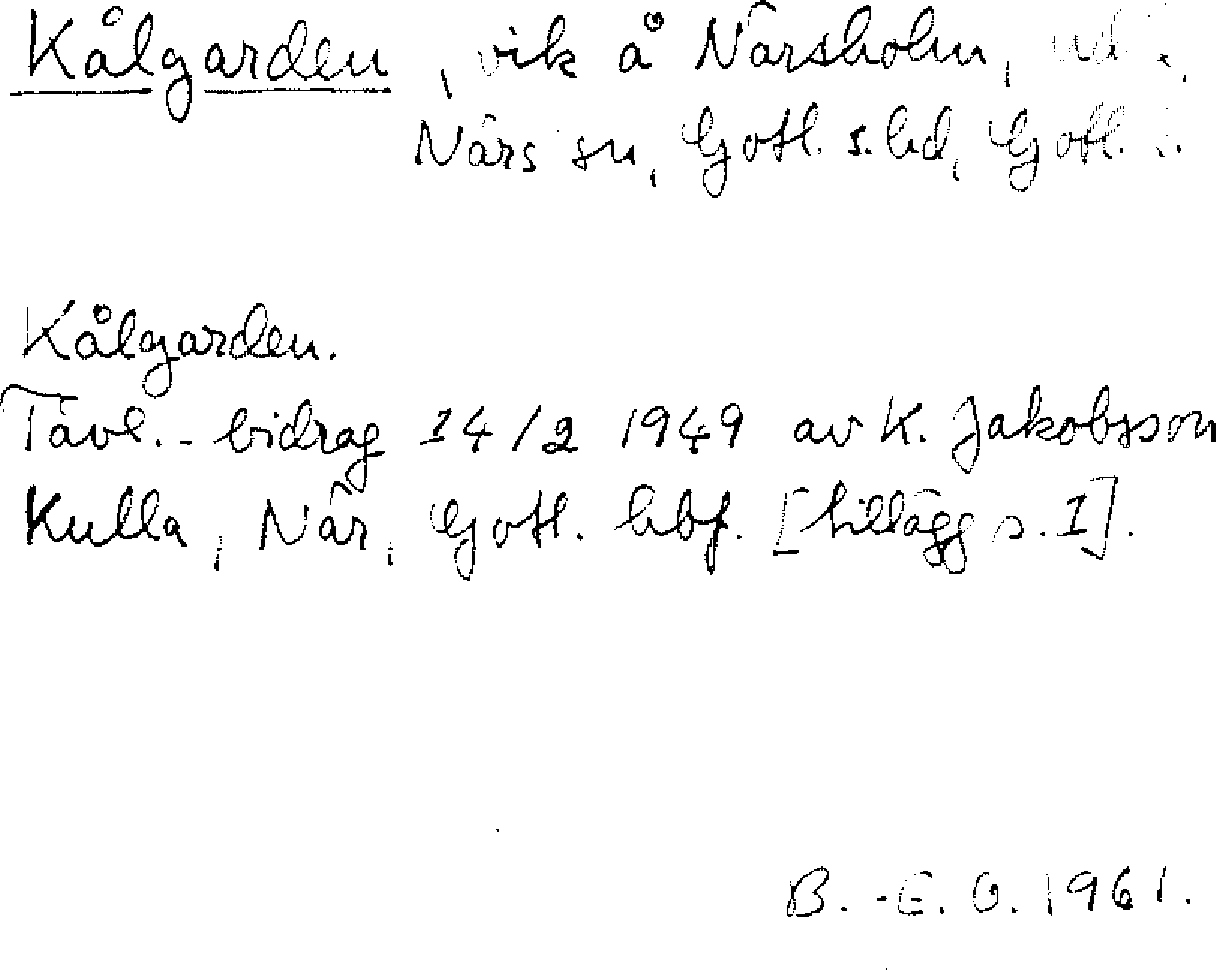 Kålgarden, vik å Närsholm,
Närs sn, Gotl. s. hd, Gotl.
Kålgarden.
Tävl.-bidrag 14/2 1949 av K. Jakobsson
Kulla, När, Gotl. hbf. [tillägg s. 1].
B.-E. O. 1961.